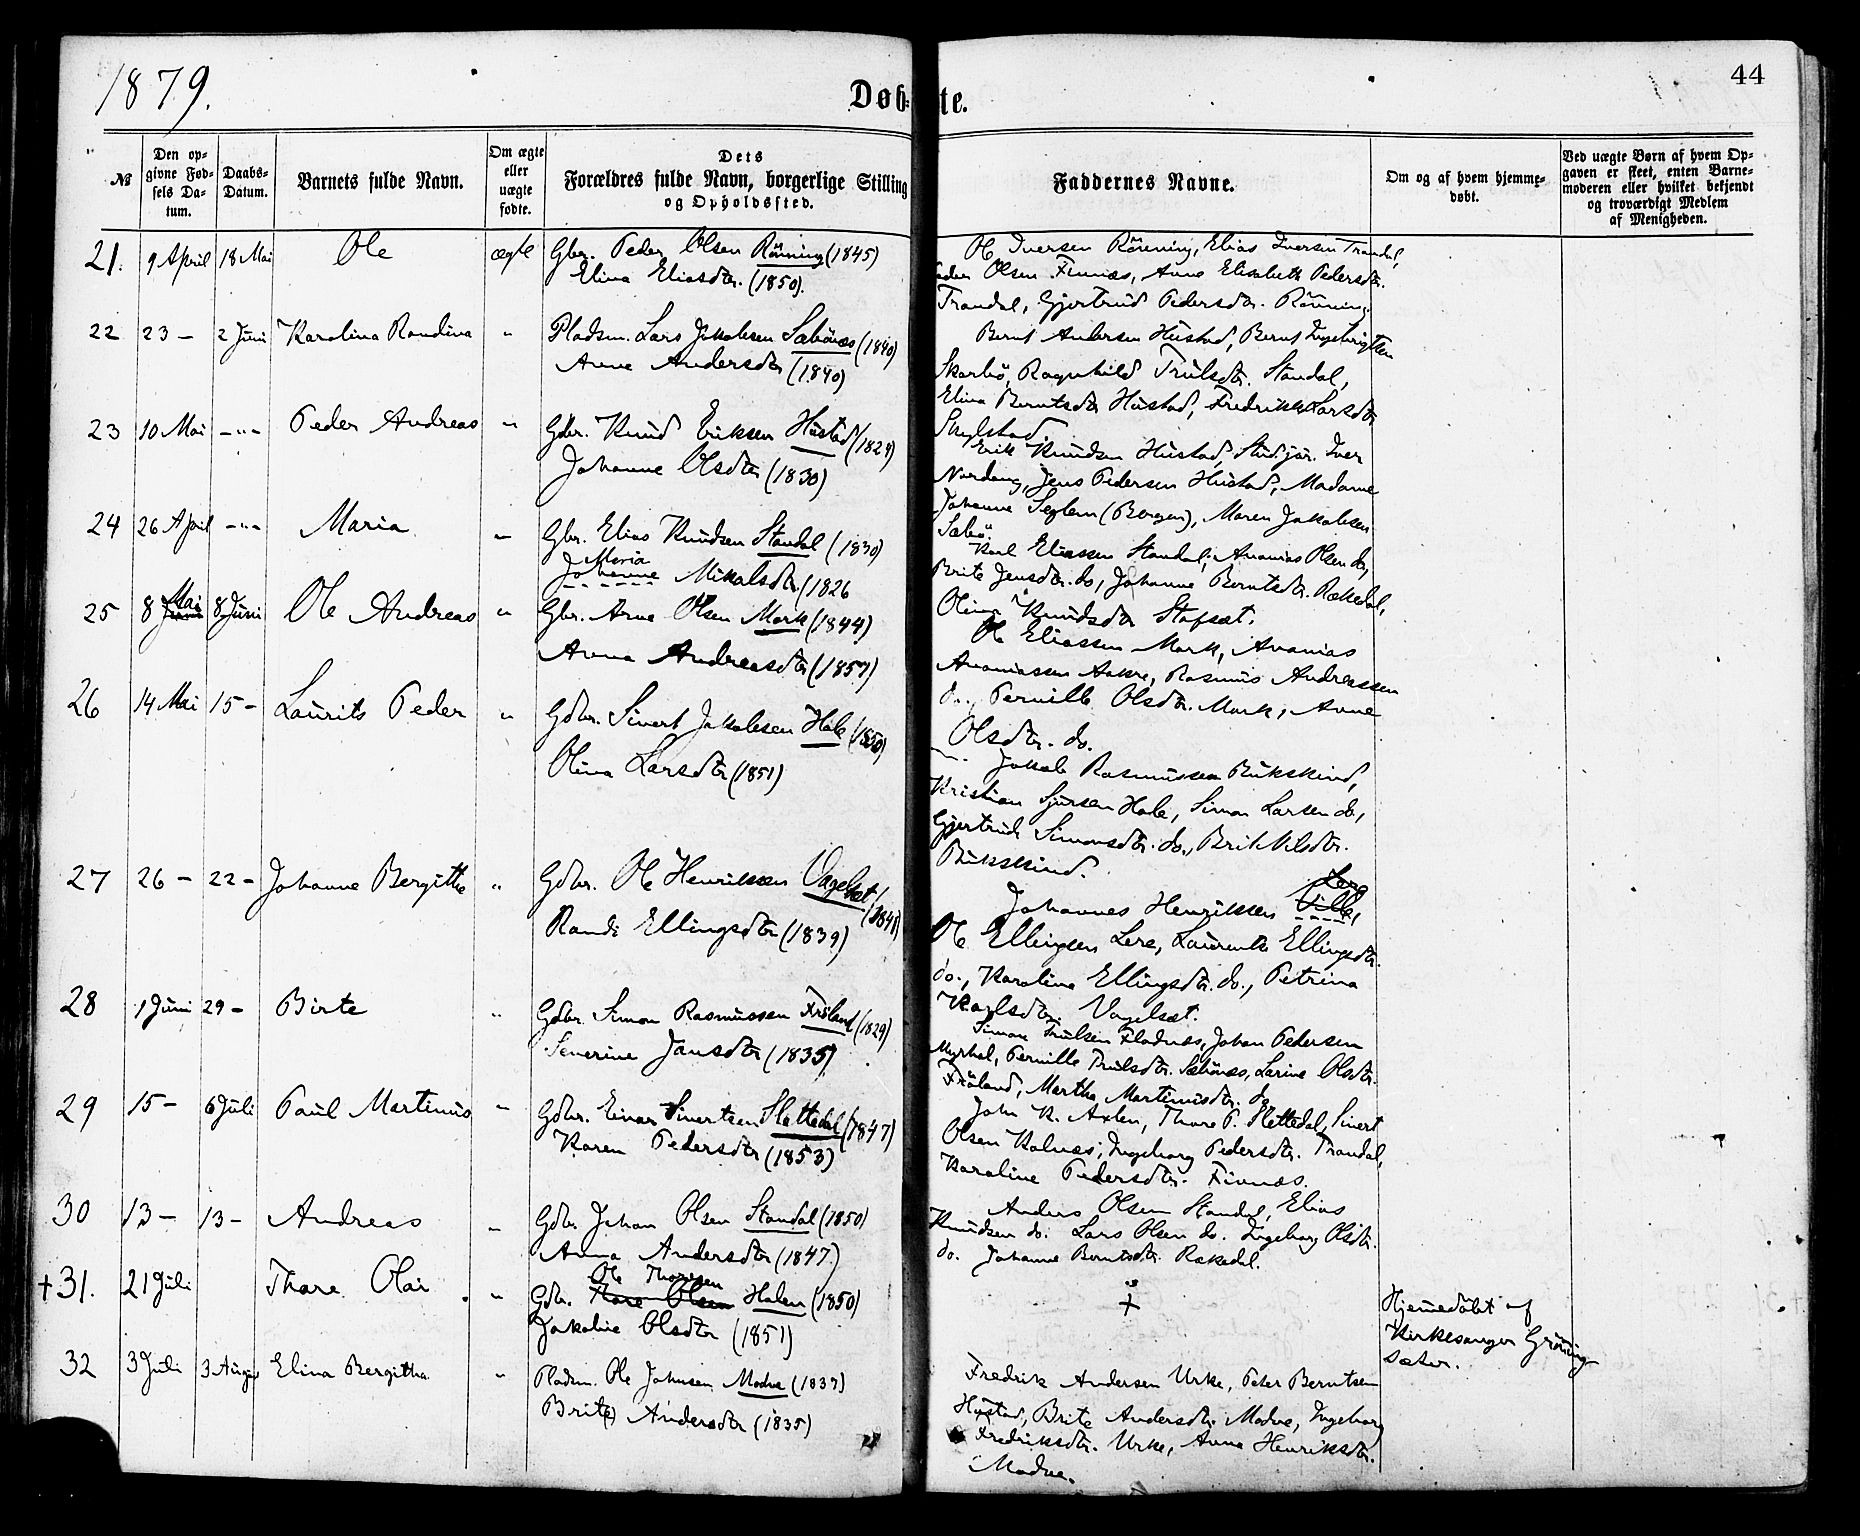 1879.
Døbte.
44
№
Den opgivne Fødsels Datum.
Daabs-Datum.
Barnets fulde Navn.
Om ægte eller uægte fødte.
Dets
Forældres fulde Navn, borgerlige Stilling
og Opholdssted.
Faddernes Navne.
Om og af hvem hjemmedøbt.
Ved uægte Børn af hvem Opgaven er skeet, enten Barnemoderen eller hvilket bekjendt og troværdigt Medlem af Menigheden.
21. 9 April 18 Mai Ole ægte Gbr. Peder Olsen Rönning (1845)
Elina Eliasdtr. (1850).
Ole Iversen Rönning, Elias Iversen Trandal,
Peder Olsen Finnæs, Anne Elisabeth Pedersdtr.
Trandal, Gjertrud Pedersdtr. Rönning
22 23 – 2 Juni Karolina Randina " Pladsm. Lars Jakobsen Sæbönæs (1840)
Anne Andersdtr (1840)
Bernt Andersen Hustad, Bernt Ingebrigtsen
Skarbö, Ragnhild Trulsdtr. Standal,
Elina Berntsdtr Hustad, Fredrikke Larsdtr
Skylstad.
23 10 Mai –"– Peder Andreas " Gbr. Knud Eriksen Hustad (1829)
Johanne Olsdtr (1830)
Erik Knudsen Hustad, Stud. jur. Iver
Nordang, Jens Pedersen Hustad, Madame
Johanne Seglem (Bergen), Maren Jakobsen
Sæbö.
24 26 April –"– Maria " Gbr. Elias Knudsen Standal (1830)
Maria
Johanne Mikalsdtr (1826
Karl Eliassen Standal, Ananias Olsen do,
Brite Jensdtr. do, Johanne Berntsdtr. Rækedal,
Olina Knudsdtr Stafsæt.
25 8 Juni Mai 8 Juni Ole Andreas " Gbr. Arne Olsen Mork (1844)
Anna Andreasdtr (1857)
Ole Eliassen Mork, Ananias
Ananiassen Aakre, Rasmus Andreassen
do., Pernille Olsdtr. Mork, Anne
Olsdtr. do.
26 14 Mai 15 – Laurits Peder " Gdbr. Sivert Jakobsen Hole (1850)
Olina Larsdtr (1851)
Jakob Rasmussen Bukskind,
Kristian Sjursen Hole, Simon Larsen do,
Gjertrude Simonsdtr. do., Brit Nilsdtr.
Bukskind.
27 26 – 22 – Johanne Bergithe " Gdbr. Ole Henriksen Vagelsæt (1841)
Randi Ellingsdtr (1839)
Lere
Johannes Henriksen
Ole Ellingsen Lere, Laurentse Ellingsdtr.
do., Karoline Ellingsdtr. do., Petrina
Karlsdtr. Vagelsæt.
28 1 Juni 29 – Birte " Gdbr. Simon Rasmussen Fröland (1829)
Severine Jansdtr (1835)
Simon Trulsen Fladnæs, Johan Pedersen
Myrhol, Pernille Trulsdtr. Sæbönæs, Larine Olsdtr.
Fröland, Marthe Martinusdtr. do
29 15 – 6 Juli Paul Martinus " Gdbr. Einar Sivertsen Slettedal (1847)
Karen Pedersdtr (1853)
John K. Axlen, Thore P. Slettedal, Sivert
Olsen Kalnæs, Ingeborg Pedersdtr. Trandal,
Karoline Pedersdtr. Finnæs.
30 13 – 13 – Andreas " Gdbr Johan Olsen Standal (1850)
Anna Andersdtr (1847)
Anders Olsen Standal, Elias
Knudsen do. Lars Olsen do. Ingeborg Olsdtr.
do. Johanne Berntsdtr. Rækedal.
† 31. 21 Juli Thore Olai " Ole Thoresen
Gdbr. Thore Olsen Holen (1850)
Jakobine Olsdtr (1851)
†
Hjemmedöbt af
Kirkesanger Gröning-
sæter.
32 3 Juli 3 August Elina Bergitha " Pladsm. Ole Johnsen Modve (1837)
Brite Andersdtr (1835)
Fredrik Andersen Urke, Peter Berntsen
Hustad, Brite Andersdtr. Modve, Ingeborg
Fredriksdtr. Urke, Anne Henriksdtr.
Modve.